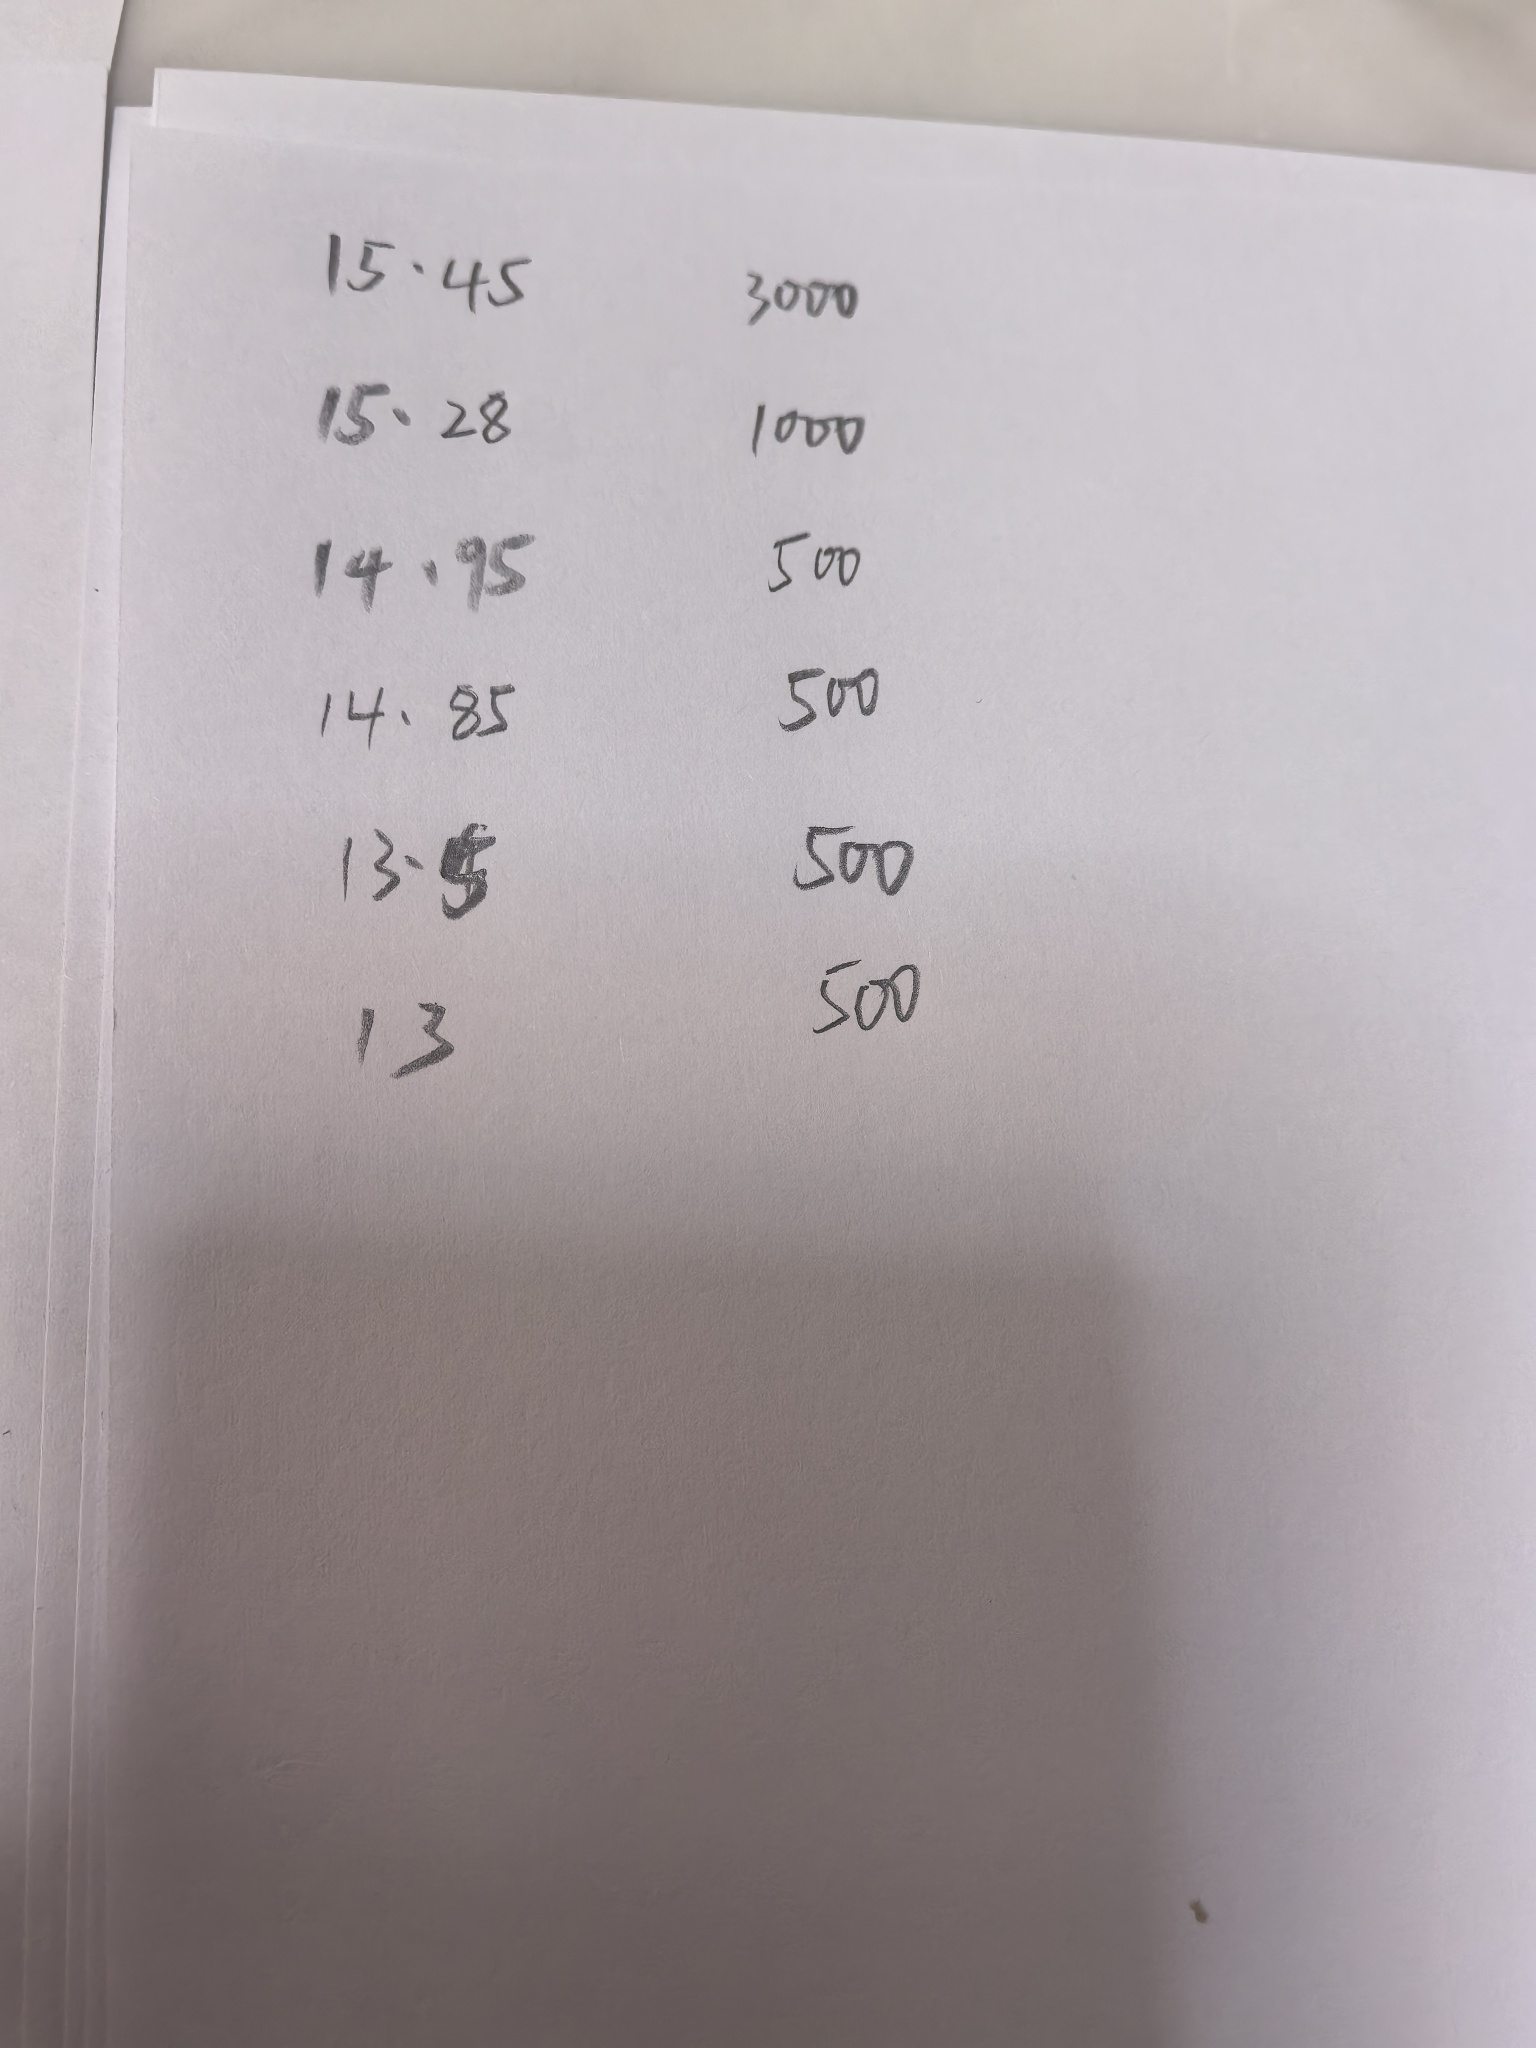 15.45 3000
15.28 1000
14.95 500
14.85 500
13.5 500
13 500